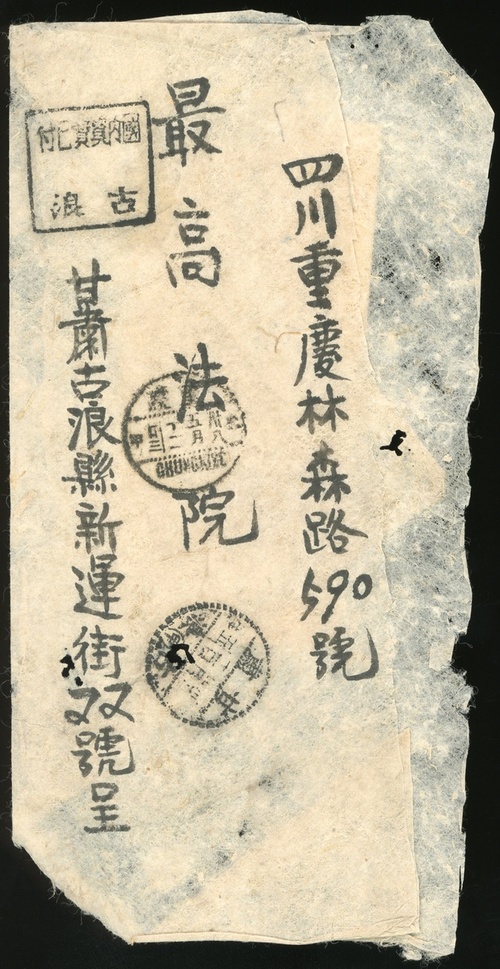 四川重慶林森路590號
最高法院
國內資費已付
古浪
甘肅古浪縣新運街双號呈
CHUNGKING
五月